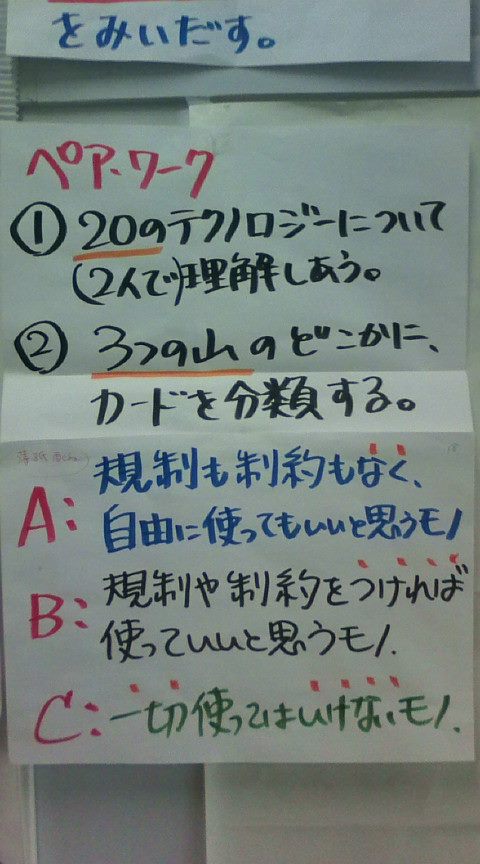 をみいだす。
ペア・ワーク
① 20のテクノロジーについて
(2人で)理解しあう。
② 3つの山のどこかに、
カードを分類する。
A: 規制も制約もなく、
自由に使ってもいいと思うモノ
B: 規制や制約をつければ
使っていいと思うモノ.
C: 一切使ってはいけないモノ.